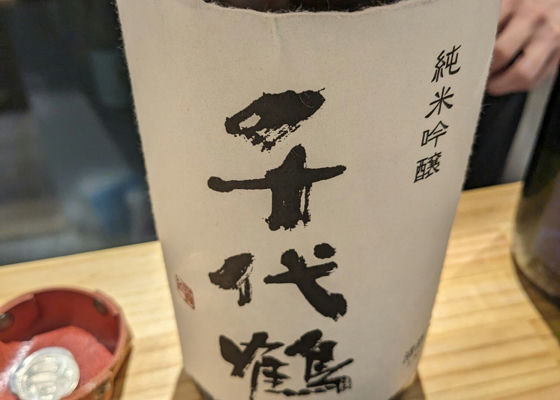 純米吟醸
千代鶴